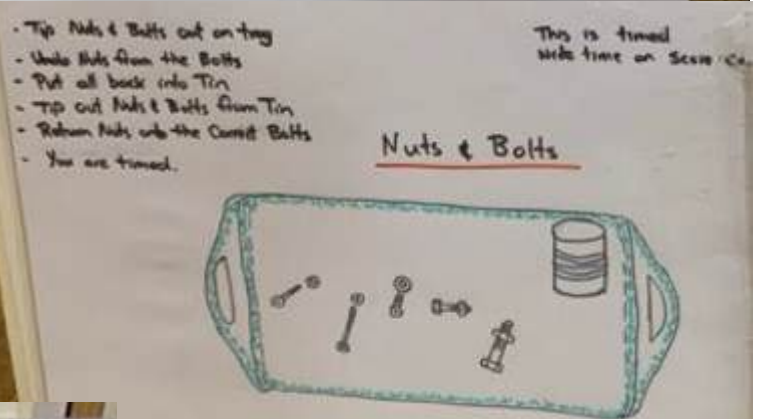 - Tip Nuts & Bolts out on tray
- Undo Nuts from the Bolts
- Put all back into Tin
- Tip out Nuts & Bolts from Tin
- Return Nuts onto the Correct Bolts
- You are timed.
This is timed
Write time on Score
Nuts & Bolts